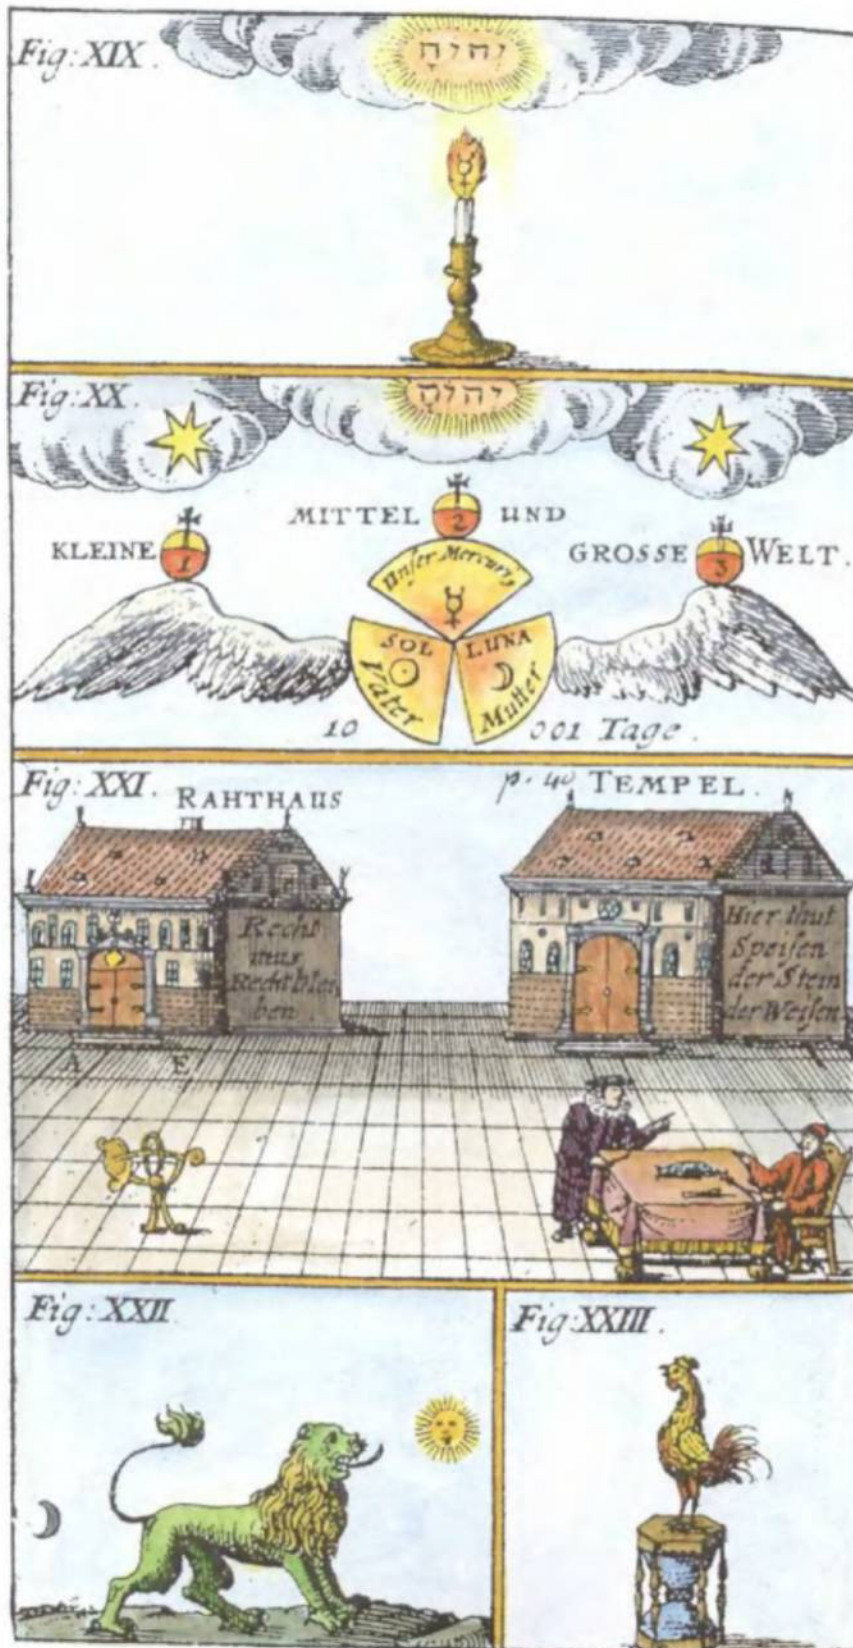 Fig: XIX.
יהוה
Fig: XX.
יהוה
KLEINE 1 MITTEL 2 UND GROSSE 3 WELT.
Unser Mercuriꝰ
☿
SOL
☉
Vater
LUNA
☽
Mutter
10 001 Tage.
Fig: XXI.
RAHTHAUS
p. 40 TEMPEL.
Recht
mus
Recht blei
ben
Hier thut
Speisen
der Stein
der Weisen
A E
Fig: XXII.
Fig: XXIII.